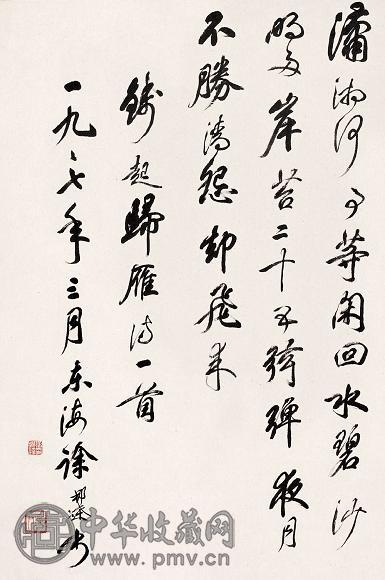 瀟湘何事等閑回水碧沙
明两岸苔二十五弦彈夜月
不勝清怨却飛来
錢起歸雁诗一首
一九八七年三月东海徐邦达书
中华收藏网
www.pmv.cn